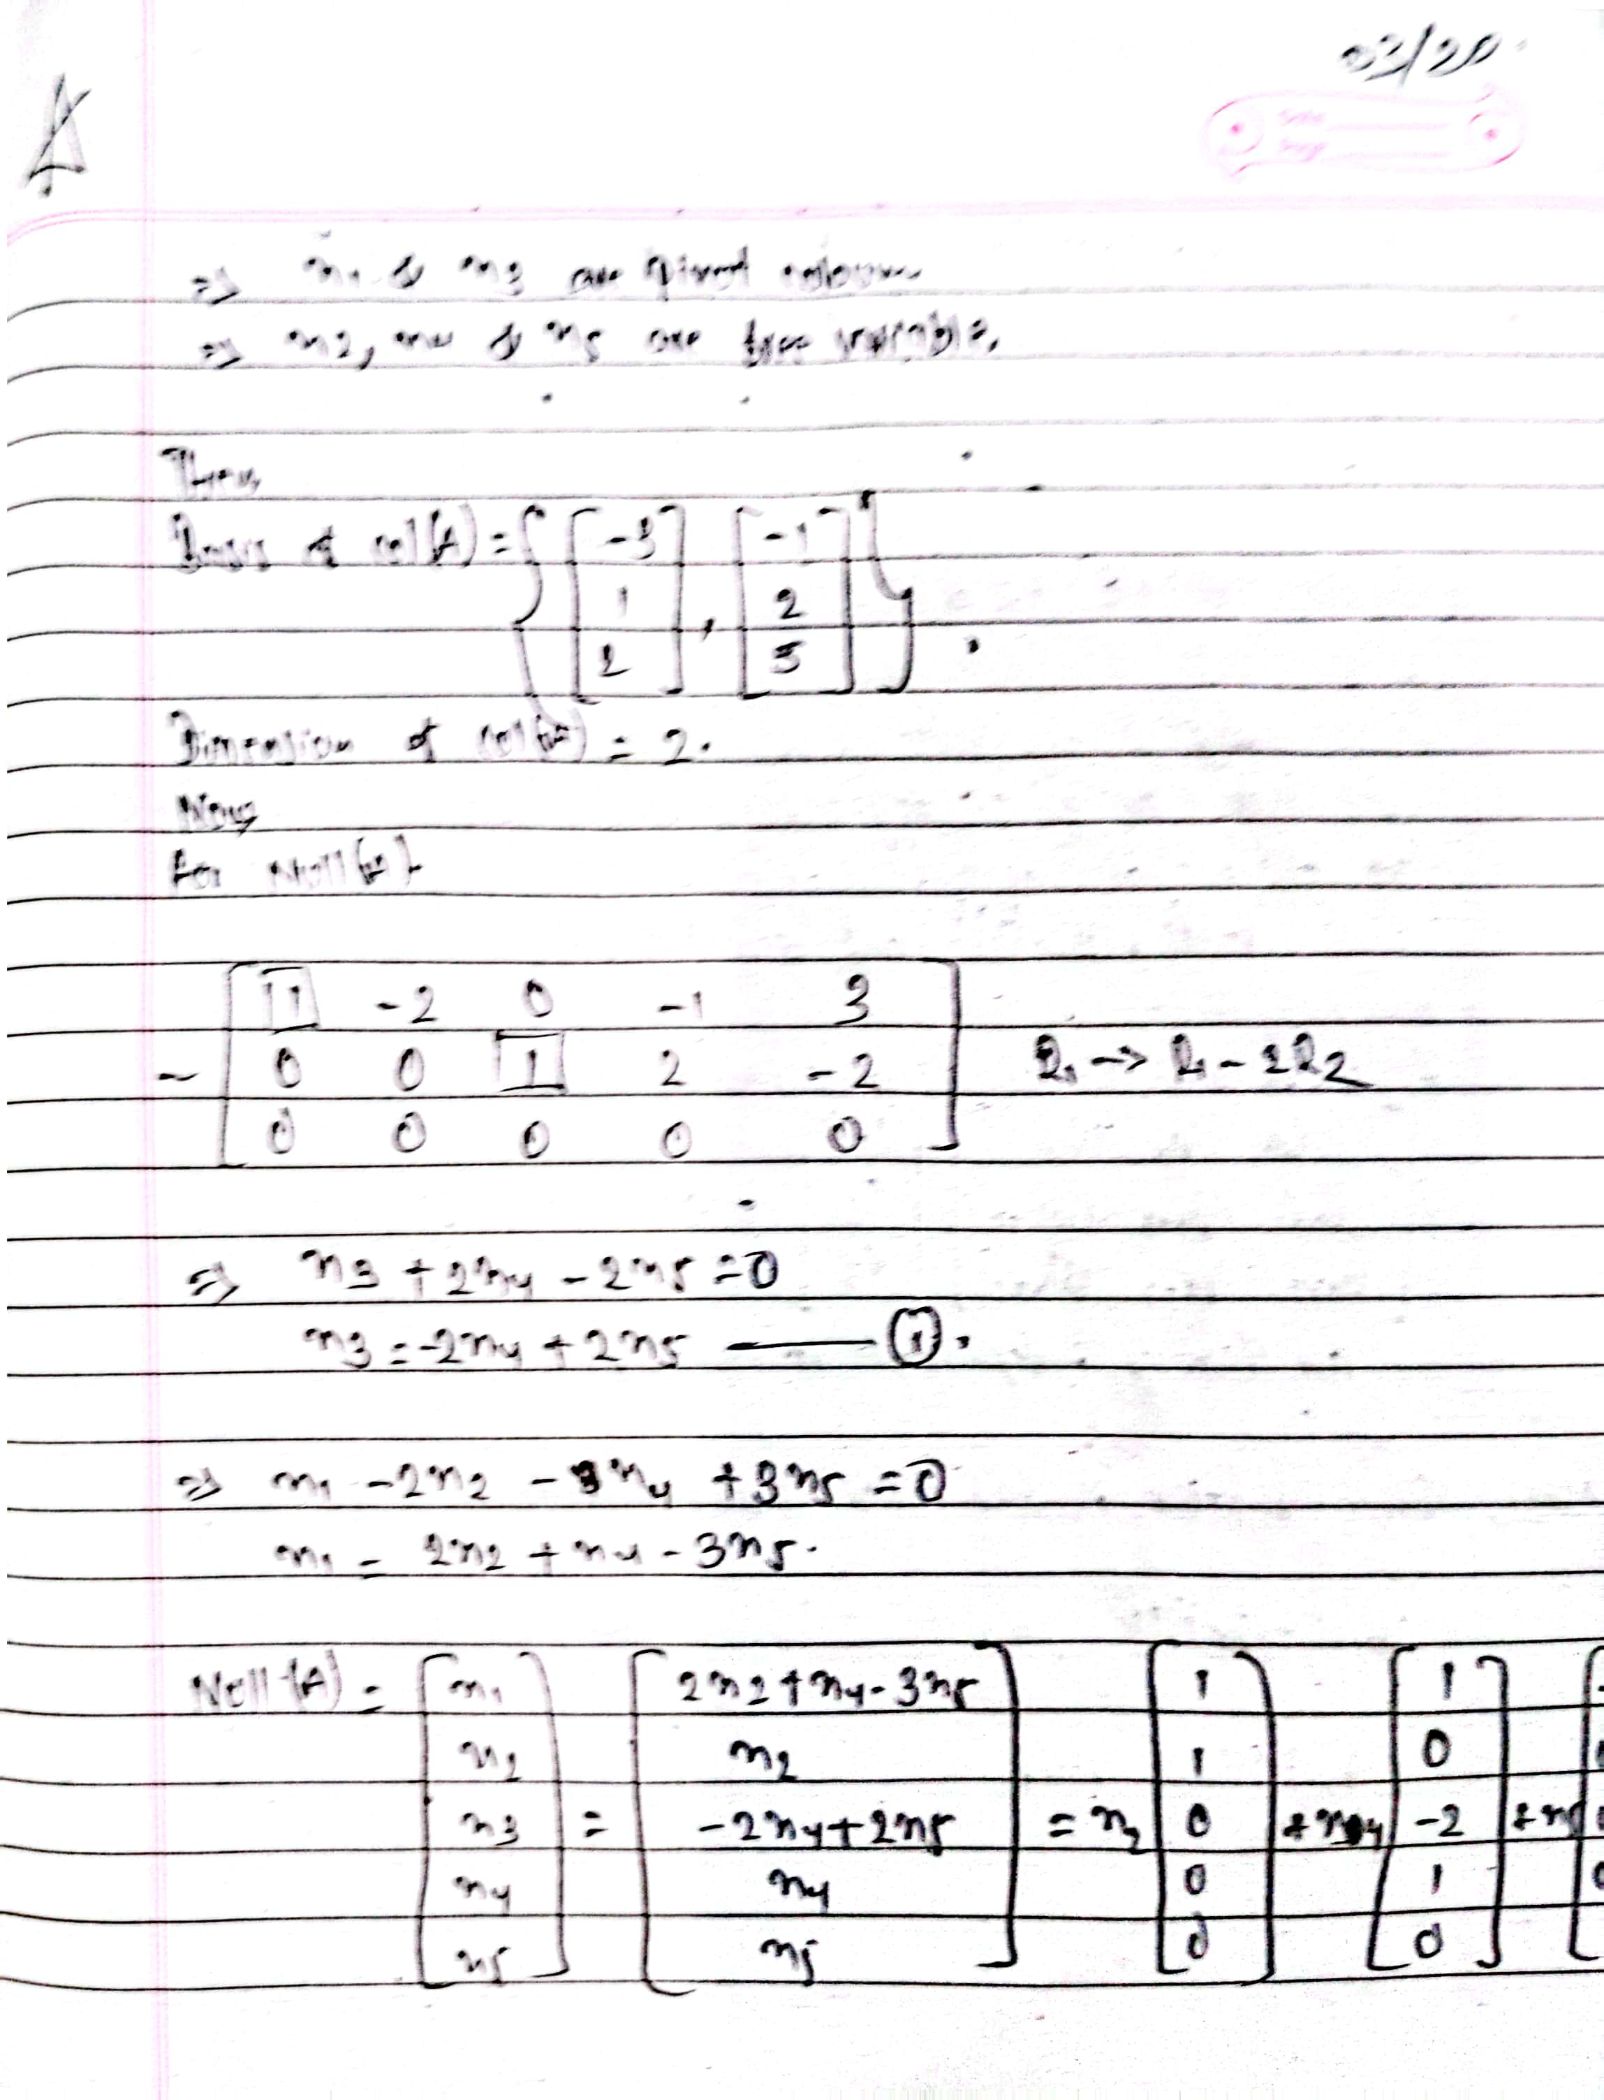 03/20
A
Date
Page
⇒ x1 & x3 are pivot column
⇒ x2, x4 & x5 are free variable,
Then,
Basis of col(A) = { [-3 1 2], [-1 2 5] }
Dimension of col(A) = 2.
Now,
for Null(A)
~ [ 1 -2 0 -1 3
0 0 1 2 -2
0 0 0 0 0 ] R1 → R1 - 2R2
⇒ x3 + 2x4 - 2x5 = 0
x3 = -2x4 + 2x5 —— (1).
⇒ x1 - 2x2 - x4 + 3x5 = 0
x1 = 2x2 + x4 - 3x5.
Null(A) = [ x1 ] [ 2x2 + x4 - 3x5 ] [ 1 ] [ 1 ]
[ x2 ] [ x2 ] [ 1 ] [ 0 ]
[ x3 ] = [ -2x4 + 2x5 ] = x2 [ 0 ] + x4 [ -2 ] + x5
[ x4 ] [ x4 ] [ 0 ] [ 1 ]
[ x5 ] [ x5 ] [ 0 ] [ 0 ]